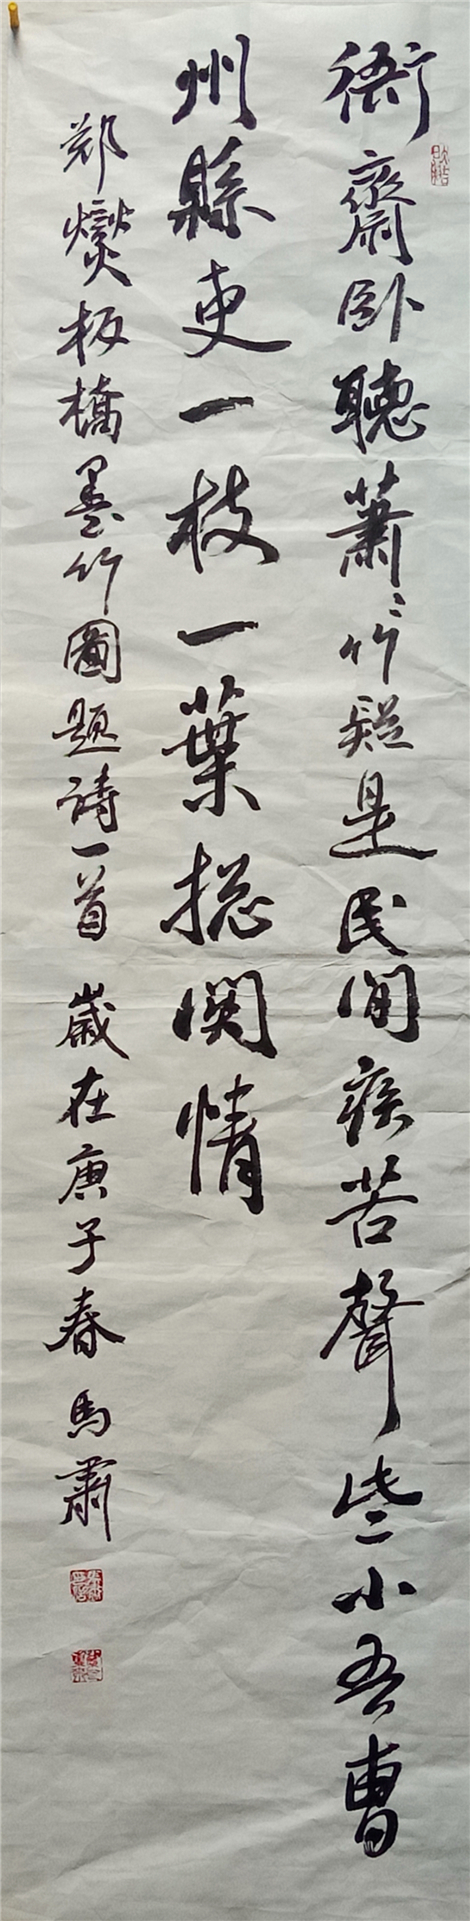 衙齋卧聽蕭〻竹疑是民間疾苦聲些小吾曹
州縣吏一枝一葉捴関情
鄭燮板橋墨竹圖題詩一首 歲在庚子春 馬肅